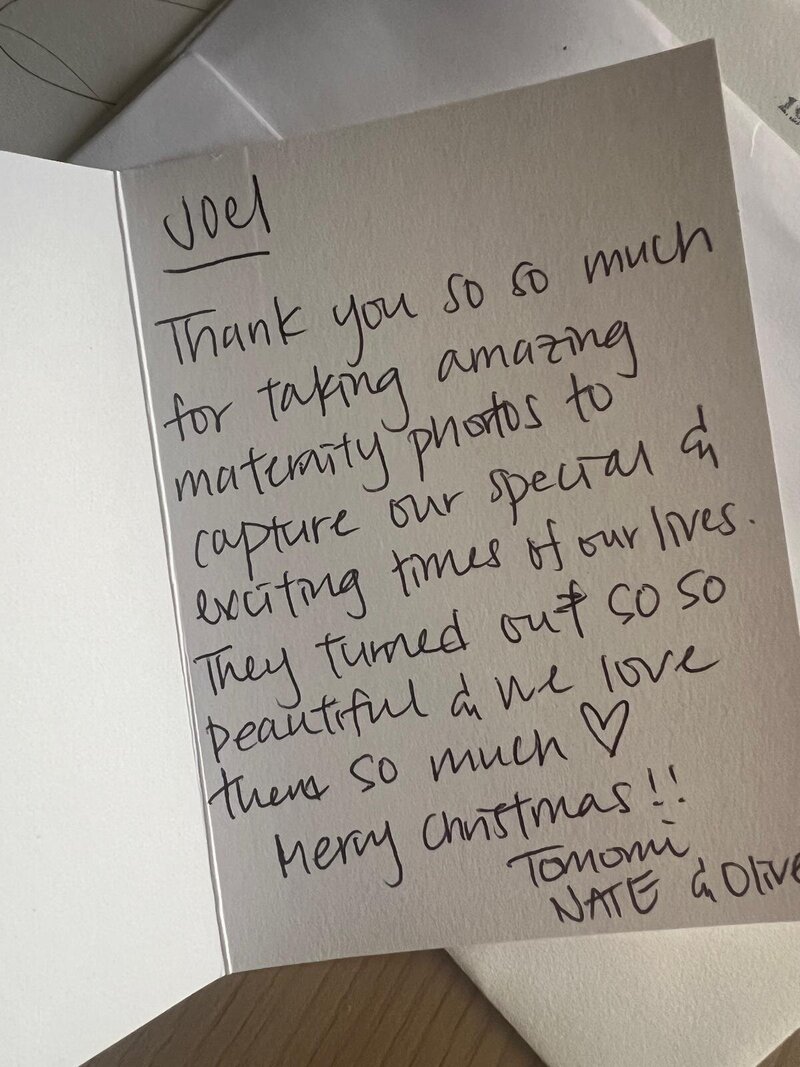 Joel
Thank you so so much
for taking amazing
maternity photos to
capture our special &
exciting times of our lives.
They turned out so so
beautiful & we love
them so much ♡
Merry Christmas!!
Tomomi
NATE & Olive